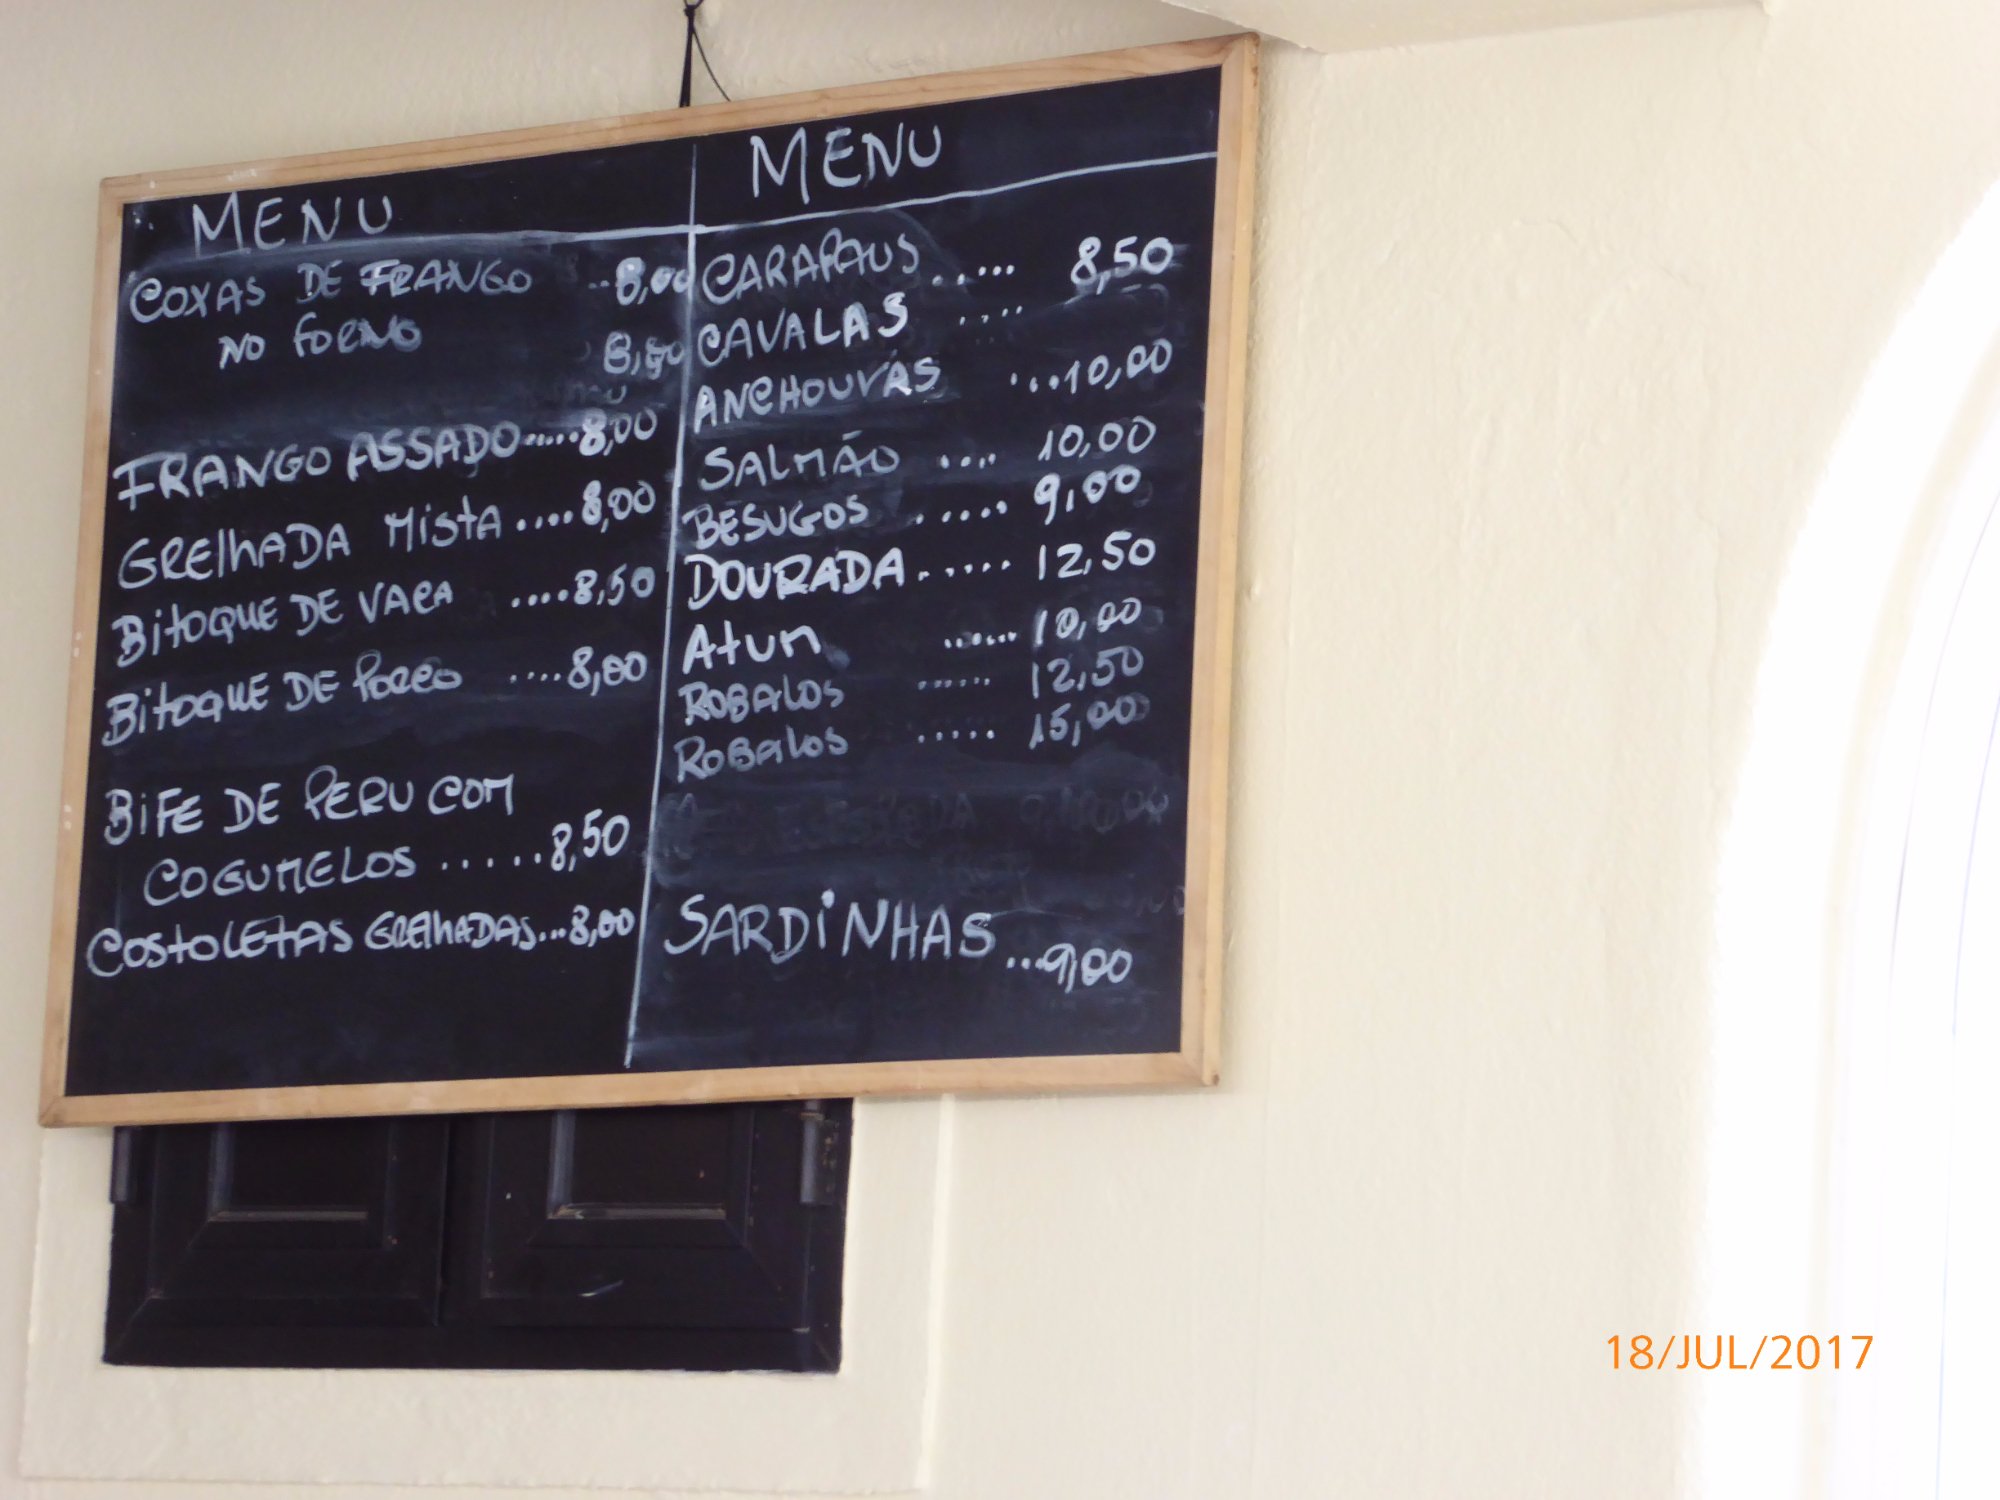 MENU
COXAS DE FRANGO ..8,00
NO FORNO 8,50
FRANGO ASSADO.....8,00
GRElhADA MistA ....8,00
BitoQUE DE VACA ....8,50
BitoQUE DE PORCO ....8,00
BiFE DE PERU COM
COGUMELOS .....8,50
COStOLEtAS GRElhADAS...8,00
MENU
CARAPAUS ..... 8,50
CAVALAS ....
ANCHOUVAS ...10,00
SALMÃO .... 10,00
BESUGOS ..... 9,00
DOURADA ..... 12,50
AtUM ...... 10,00
ROBALOS ...... 12,50
ROBALOS ..... 15,00
SARDiNHAS ...9,00
18/JUL/2017